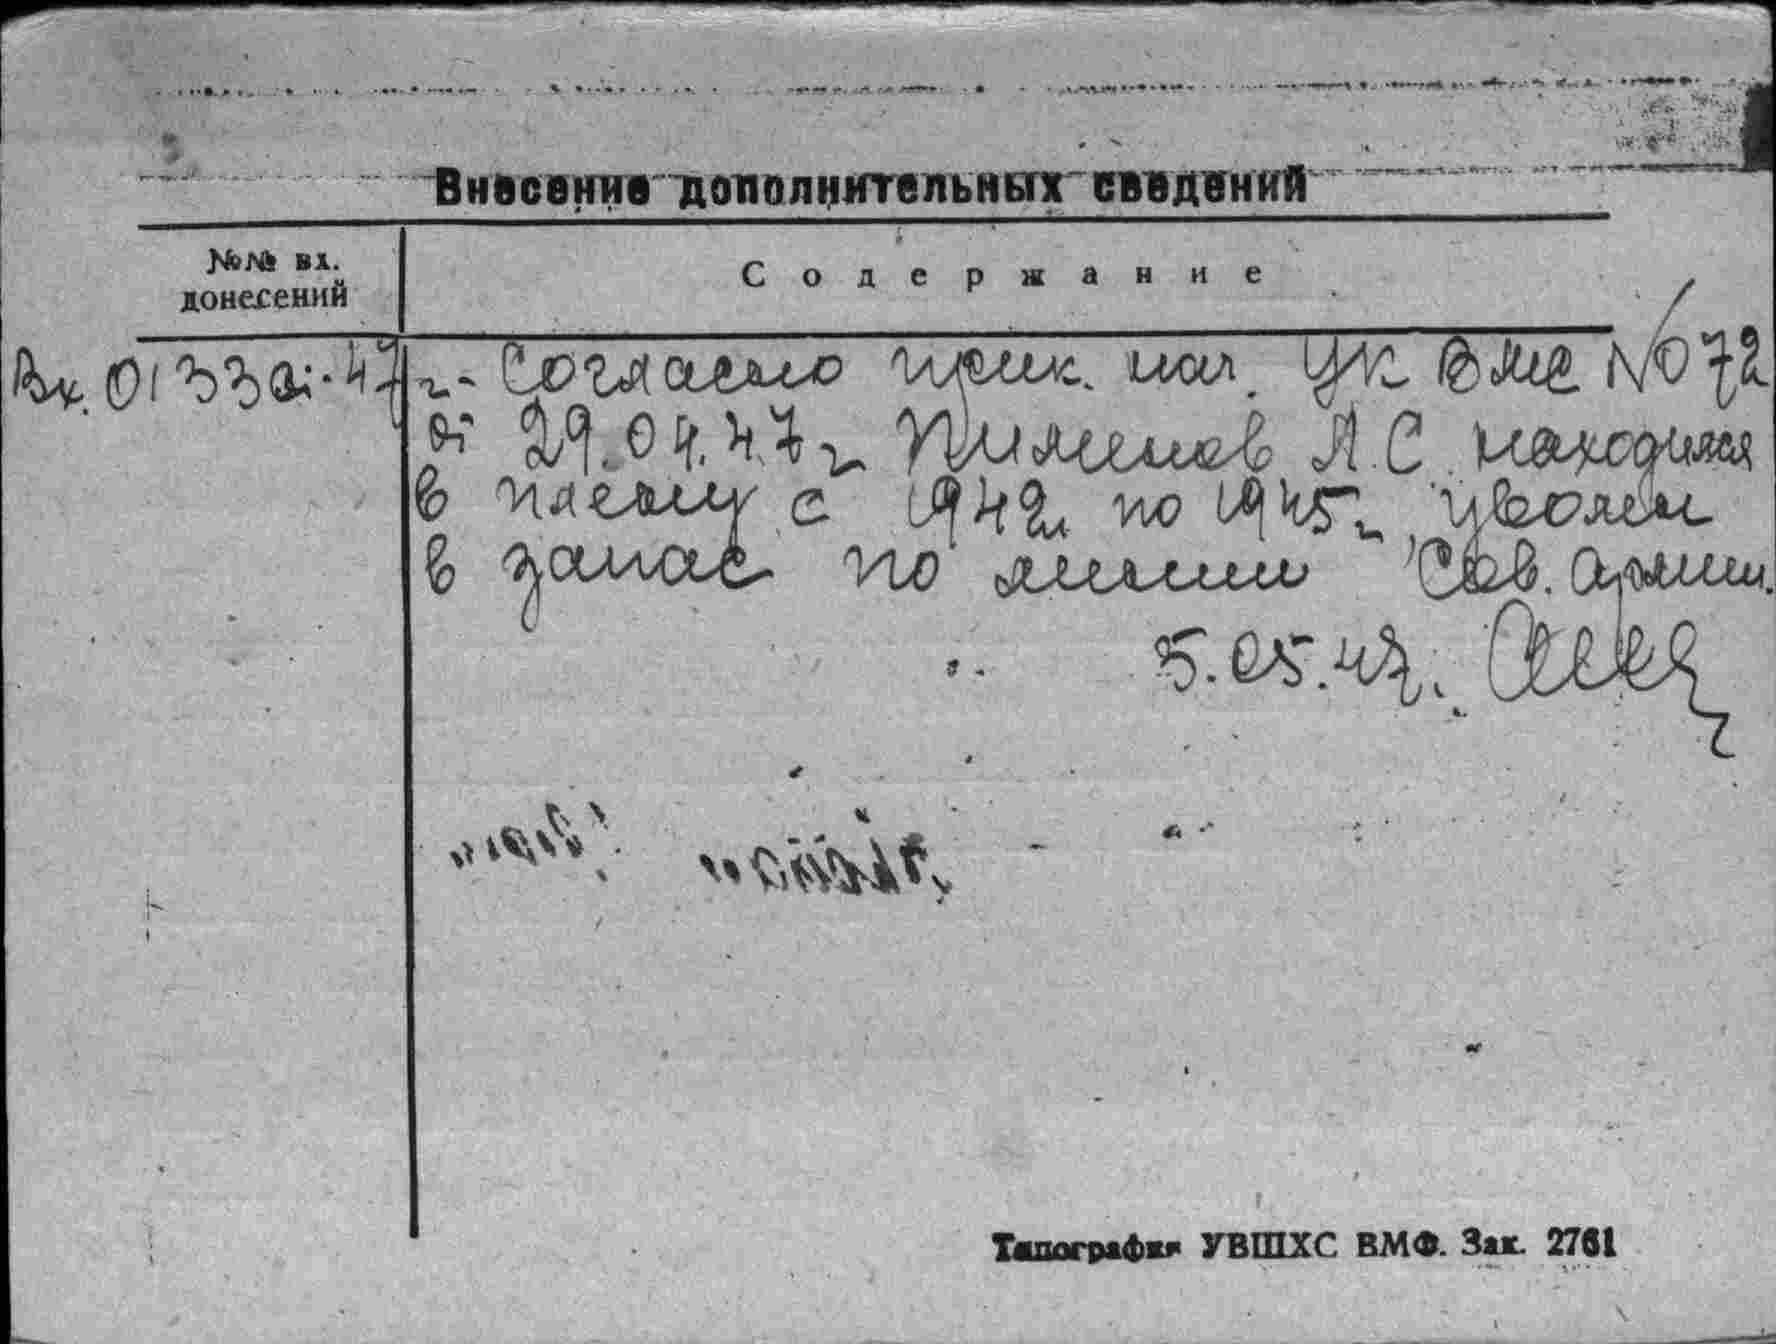 Внесение дополнительных сведений
№№ вх.
донесений
Содержание
Вх. 0133
47г.- Согласно прик. нач. УК ВМС №72
от 29.04.47г Пименов А.С. находился
в плену с 1942 по 1945г, уволен
в запас по линии Сов. Армии.
5.05.47г.
Типография УВШХС ВМФ. Зак. 2761